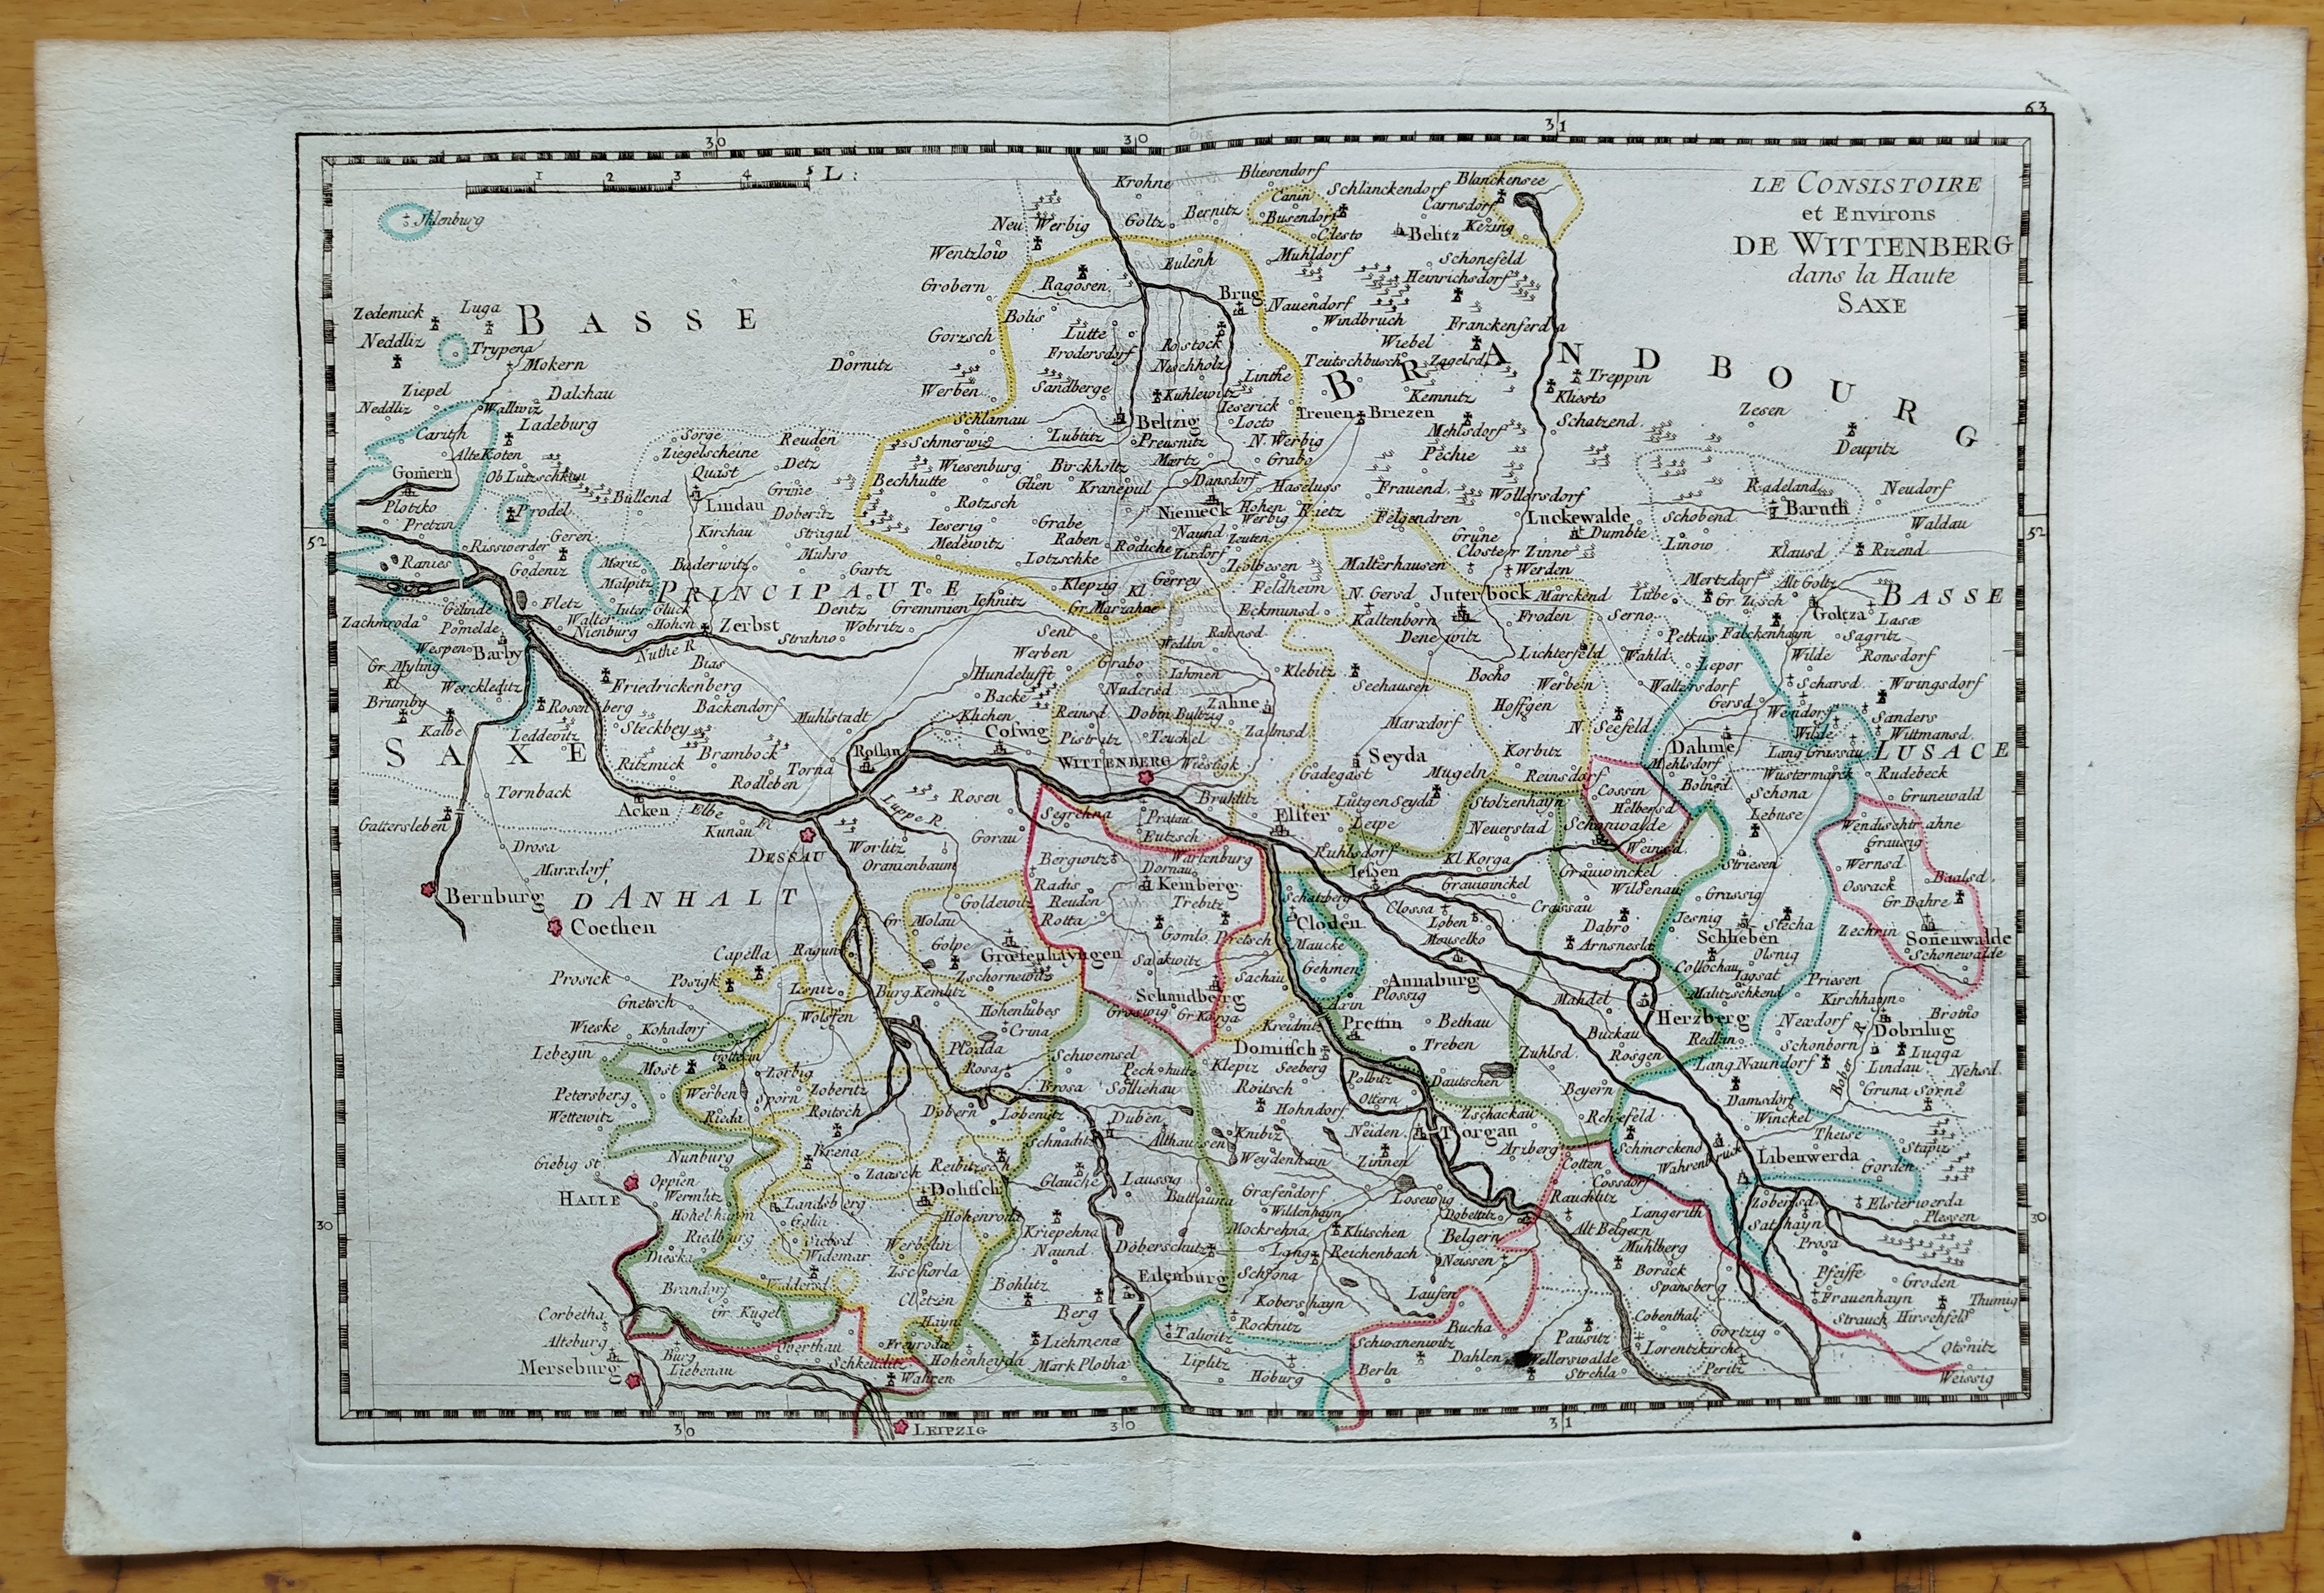 63
30
30
31
1 2 3 4 5 L:
LE CONSISTOIRE
et Environs
DE WITTENBERG
dans la Haute
SAXE
Ihlenburg
Krohne
Bliesendorf
Schlanckendorf
Blanckensee
Canin
Carnsdorf
Neu Werbig
Goltz
Bernitz
Busendorf
Clesto
Belitz
Kezing
Wentzlow
Eulenh
Muhldorf
Schonefeld
Heinrichsdorf
Grobern
Ragosen
Brug
Nauendorf
Zedemick
Luga
BASSE
Bolis
Windbruch
Franckenferda
Neddliz
Trypena
Gorzsch
Lutte
Rostock
Wiebel
Frodersdorf
Neschholz
Teutschbusch
Zagelsd
BRANDBOURG
Mokern
Dornitz
Linthe
Treppin
Ziepel
Dalchau
Werben
Sandberge
Kuhlewitz
Kemnitz
Kliesto
Neddliz
Wallwiz
Ieserick
Treuen Briezen
Zesen
Ladeburg
Schlamau
Beltzig
Locto
Schatzend.
Carith
Sorge
Reuden
Schmerwiz
Lubtitz
Preusnitz
N. Werbig
Mehlsdorf
Deupitz
Alte Koten
Ziegelscheine
Detz
Wiesenburg
Birckholtz
Mœrtz
Grabo
Pechie
Gomern
Quast
Bechhutte
Glien
Kranepul
Dansdorf
Haseluss
Frauend.
Wollersdorf
Radeland
Neudorf
Plotzko
Bullend
Lindau
Grine
Rotzsch
Niemeck
Hohen Werbig
Rietz
Felgendren
Luckewalde
Schobend
Baruth
Pretzin
Prodel
Doberitz
Ieserig
Grabe
Naund
Zeuten
Grune
Dumbte
Waldau
52
Risswerder
Geren
Kirchau
Stragul
Medewitz
Raben
Rodiche
Zixdorf
Closter Zinne
Linow
Klausd
Rizend
52
Ranies
Godeniz
Moriz
Buderwitz
Muhro
Lotzschke
Zolbesen
Malterhausen
Werden
Malpitz
Gartz
Klepzig
Kl
Gerrey
Feldheim
N. Gersd
Juterbock
Marckend
Lube
Mertzdorf
Alt Goltz
PRINCIPAUTE
BASSE
Gelinde
Fletz
Iuter Gluck
Dentz
Gremmien
Ichnitz
Gr. Marzahne
Eckmunsd.
Kaltenborn
Froden
Serno
Gr. Zisch
Goltza
Lasæ
Zachmroda
Pomelde
Walter Nienburg
Hohen
Zerbst
Strahno
Wobritz
Sent
Rahnsd
Denewitz
Petkus
Falckenhayn
Sagritz
Wespen
Barby
Nuthe R
Werben
Weddin
Lichterfeld
Wahld
Wilde
Ronsdorf
Gr. Myling
Kl
Bias
Hundelufft
Grabo
Iahmen
Klebitz
Bocho
Lepor
Wercklediz
Friedrickenberg
Backe
Nudersd
Seehausen
Werbein
Waltersdorf
Scharsd.
Wiringsdorf
Brumby
Rosenberg
Backendorf
Muhlstadt
Klichen
Reinsd
Dobin
Bultzig
Zahne
Hoffgen
Gersd
Wendorf
Sanders
Kalbe
Leddewitz
Steckbey
Coswig
Marxdorf
N. Seefeld
Wilde
Wittmansd.
SAXE
Ritzmick
Brambock
Roslau
Pistritz
Teuchel
Zalmsd
Seyda
Korbitz
Dahme
Lang Grassau
LUSACE
Torna
WITTENBERG
Wiesigk
Gadegast
Mugeln
Reinsdorf
Mehlsdorf
Wustermarck
Rudebeck
Tornback
Rodleben
Rosen
Bruhlitz
Lutgen Seyda
Stolzenhayn
Cossin
Bolnsd
Schona
Grunewald
Acken
Elbe
Fl
Luppe R.
Segrehna
Pratau
Elster
Helbersd
Lebuse
Gattersleben
Kunau
Gorau
Eutzsch
Leipe
Neuerstad
Schonwalde
Wendischtrahne
Drosa
DESSAU
Worlitz
Bergwitz
Wartenburg
Ruhlsdorf
Kl Korga
Weinsd.
Striesen
Grausig
Marxdorf
Oranienbaum
Dornau
Iessen
Grauwinckel
Grauwinckel
Wernsd
Bernburg
D'ANHALT
Goldewitz
Radis
Kemberg
Schatzberg
Wildenau
Grassig
Ossack
Baalsd.
Reuden
Trebitz
Clossa
Crassau
Gr. Bahre
Coethen
Gr. Molau
Rotta
Cloden
Loben
Dabro
Iesnig
Stecha
Golpe
Gomlo
Pretsch
Maucke
Mouselko
Arnsnesla
Schlieben
Zechrin
Sonenwalde
Capella
Ragun
Græfenhayngen
Salakwitz
Olsnig
Schonewalde
Prosick
Posigk
Zschornewitz
Sachau
Gehmen
Annaburg
Collochau
Iagsat
Priesen
Iesniz
Burg Kemlitz
Schmidberg
Plossig
Mahdel
Malitzschkend
Kirchhayn
Gnetsch
Wolsfen
Hohenlubes
Groswig
Gr Korga
Axin
Herzberg
Brotno
Wieske
Kohndorf
Crina
Kreidnitz
Prettin
Bethau
Buckau
Redlin
Nexdorf
Dobrilug
Lebegin
Plodda
Schwemsel
Domitsch
Treben
Zuhlsd.
Rosgen
Schonborn
Lugga
Most
Zorbig
Rosa
Pechhutte
Klepiz
Seeberg
Lang Naundorf
Lindau
Nehsd.
Petersberg
Werben
Sporn
Zoberitz
Brosa
Solliehau
Roitsch
Polbitz
Dautschen
Beyern
Bober R
Gruna
Sorne
Wettewitz
Rieda
Roitsch
Dobern
Lobenitz
Duben
Hohndorf
Ottern
Zschackau
Rehfeld
Damsdorf
Schnaditz
Althausen
Knibiz
Neiden
Torgan
Winckel
Theise
Giebig st.
Nunburg
Brena
Zaasch
Reibitzsch
Weydenhain
Zinnen
Arzberg
Schmerckend
Stapiz
HALLE
Oppien
Glauche
Laussig
Cotten
Wahrenbruck
Libenwerda
Wermlitz
Landsberg
Dolitsch
Græfendorf
Losewig
Cossdorf
Gorden
Hohenroda
Buttauna
Wildenhayn
Dobeltitz
Rauchlitz
Zobersd
Elsterwerda
30
30
Golin
Kriepehna
Mockrehna
Klitschen
Langerith
Plessen
Riedburg
Alt Belgern
Sathhayn
Dieska
Widemar
Werbelin
Naund
Doberschutz
Lang Reichenbach
Belgern
Muhlberg
Prosa
Zschorla
Bohlitz
Eilenburg
Schöna
Neissen
Borack
Pfeiffe
Groden
Brandorf
Spansberg
Frauenhayn
Thumig
Corbetha
Gr. Kugel
Cletzen
Berg
Kobershayn
Laufen
Cobenthal
Strauch
Hirschfeld
Alteburg
Oberthau
Hayn
Liehmene
Talwitz
Rocknitz
Schwanenwitz
Bucha
Pausitz
Gortzig
Freyroda
Lorentzkirche
Otsnitz
Merseburg
Burg Liebenau
Schkeuditz
Hohenheyda
Mark Plotha
Liplitz
Hoburg
Berln
Dahlen
Wellerswalde
Peritz
Weissig
Wahren
Strehla
30
30
31
LEIPZIG